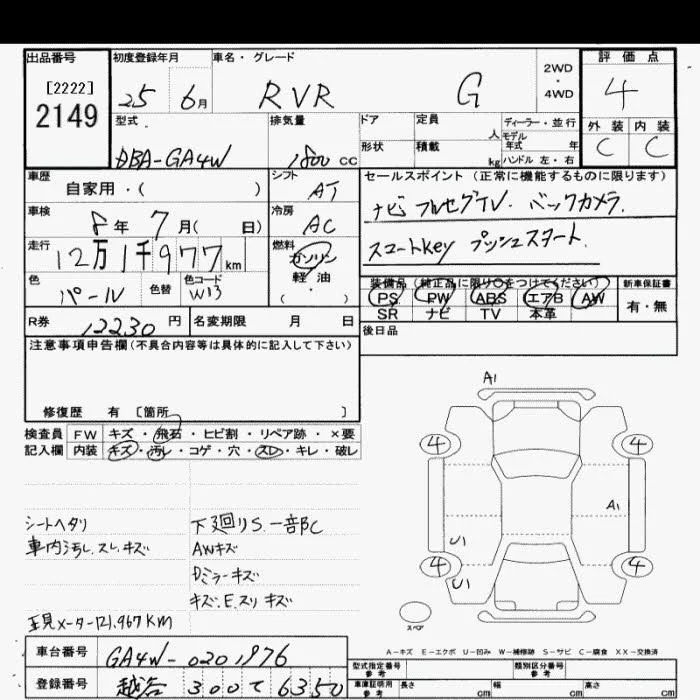 出品番号 初度登録年月 車名・グレード 2WD・4WD 評価点
[2222] 2149 25 6月 RVR G 4
型式 排気量 ドア 定員 人 ディーラー・並行 外装 内装
DBA-GA4W 1800cc 形状 積載 kg モデル年式 年 ハンドル 左・右 C C
車歴 自家用・( ) シフト AT セールスポイント(正常に機能するものに限ります)
車検 8年 7月( 日) 冷房 AC ナビ フルセグTV. バックカメラ.
走行 12万1千977km 燃料 ガソリン 軽・油 ・( ) スマートKey プッシュスタート.
色 パール 色替 色コード W13 装備品(純正品に限り○をつけてください) 新車保証書
PS PW ABS エアB AW 有・無
SR ナビ TV 本革
R券 12230円 名変期限 月 日 後日品
注意事項申告欄(不具合内容等は具体的に記入して下さい)
修復歴 有 [箇所 ]
検査員 FW キズ・飛石・ヒビ割・リペア跡・×要
記入欄 内装 キズ・汚レ・コゲ・穴・スレ・キレ・破レ
A1
4 4
A1
U1
4 4
U1
スペア
シートヘタリ 下廻りS.一部C
車内汚レ.スレ.キズ AWキズ
Dミラーキズ
キズ.E.スリキズ
現メーター121.967KM
A-キズ E-エクボ U-凹み W-補修跡 S-サビ C-腐食 XX-交換済
車台番号 GA4W-0201976 型式指定番号 参考 類別区分番号 参考
登録番号 越谷 300 て 6350 車庫証明用 参考 長さ cm 幅 cm 高さ cm